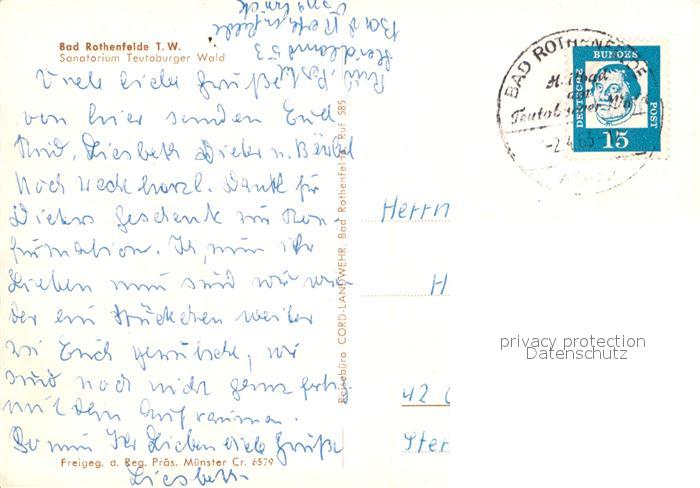 Bad Rothenfelde T. W.
Sanatorium Teutoburger Wald
Bad Rothenfelde
Viele liebe Grüße
von hier senden Euch
Rud, Liesbeth Dieter u. Bärbel
Noch recht herzl. Dank für
Dieters Geschenk zur Kon-
firmation. Ja, nun ihr
Lieben nun sind wir wie-
der ein Stückchen weiter
zu Euch gerückt, wir
sind noch nicht ganz fertig
mit dem Aufräumen.
So nun Ihr Lieben viele Grüße
Liesbeth
Freigeg. d. Reg. Präs. Münster Cr. 6579
Reisebüro CORD-LANDWEHR, Bad Rothenfelde, Ruf 585
BAD ROTHENFELDE
Heilbad
am
Teutoburger Wald
-2.4.63
DEUTSCHE
BUNDES
POST
15
Herrn
H
42
Ster
privacy protection
Datenschutz